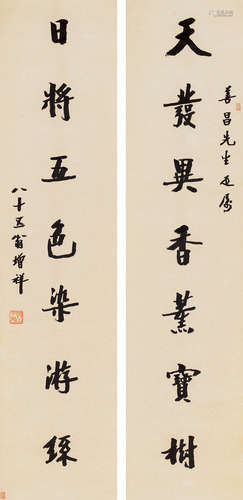 善昌先生正属
天發異香薰寶樹
日將五色染游
八十五翁增祥